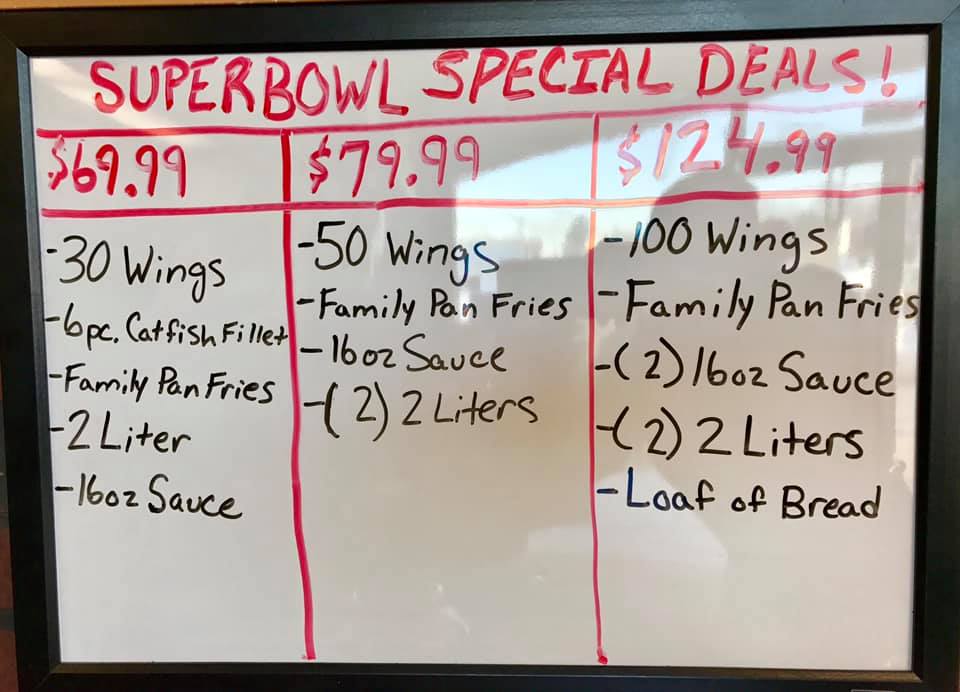 SUPERBOWL SPECIAL DEALS!
$69.99
-30 Wings
-6pc. Catfish Fillet
-Family Pan Fries
-2 Liter
-16oz Sauce
$79.99
-50 Wings
-Family Pan Fries
-16oz Sauce
-(2) 2 Liters
$124.99
-100 Wings
-Family Pan Fries
-(2) 16oz Sauce
-(2) 2 Liters
-Loaf of Bread